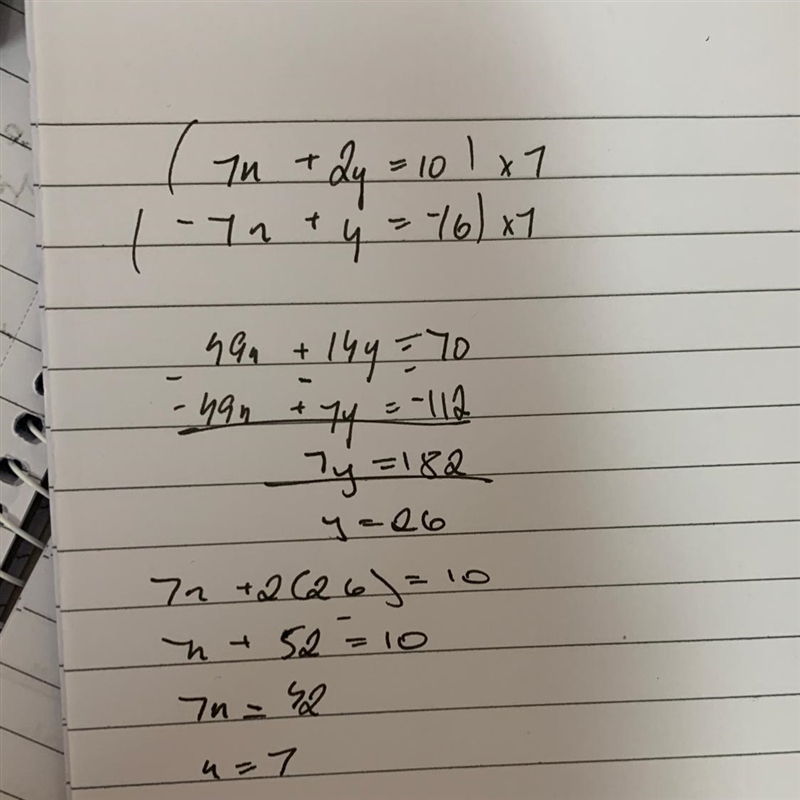 (7x + 2y = 10) × 7
(-7x + y = -16) × 7
49x + 14y = 70
- - -
-49x + 7y = -112
7y = 182
y = 26
7x + 2(26) = 10
7x + 52 = 10
7x = 42
x = 7